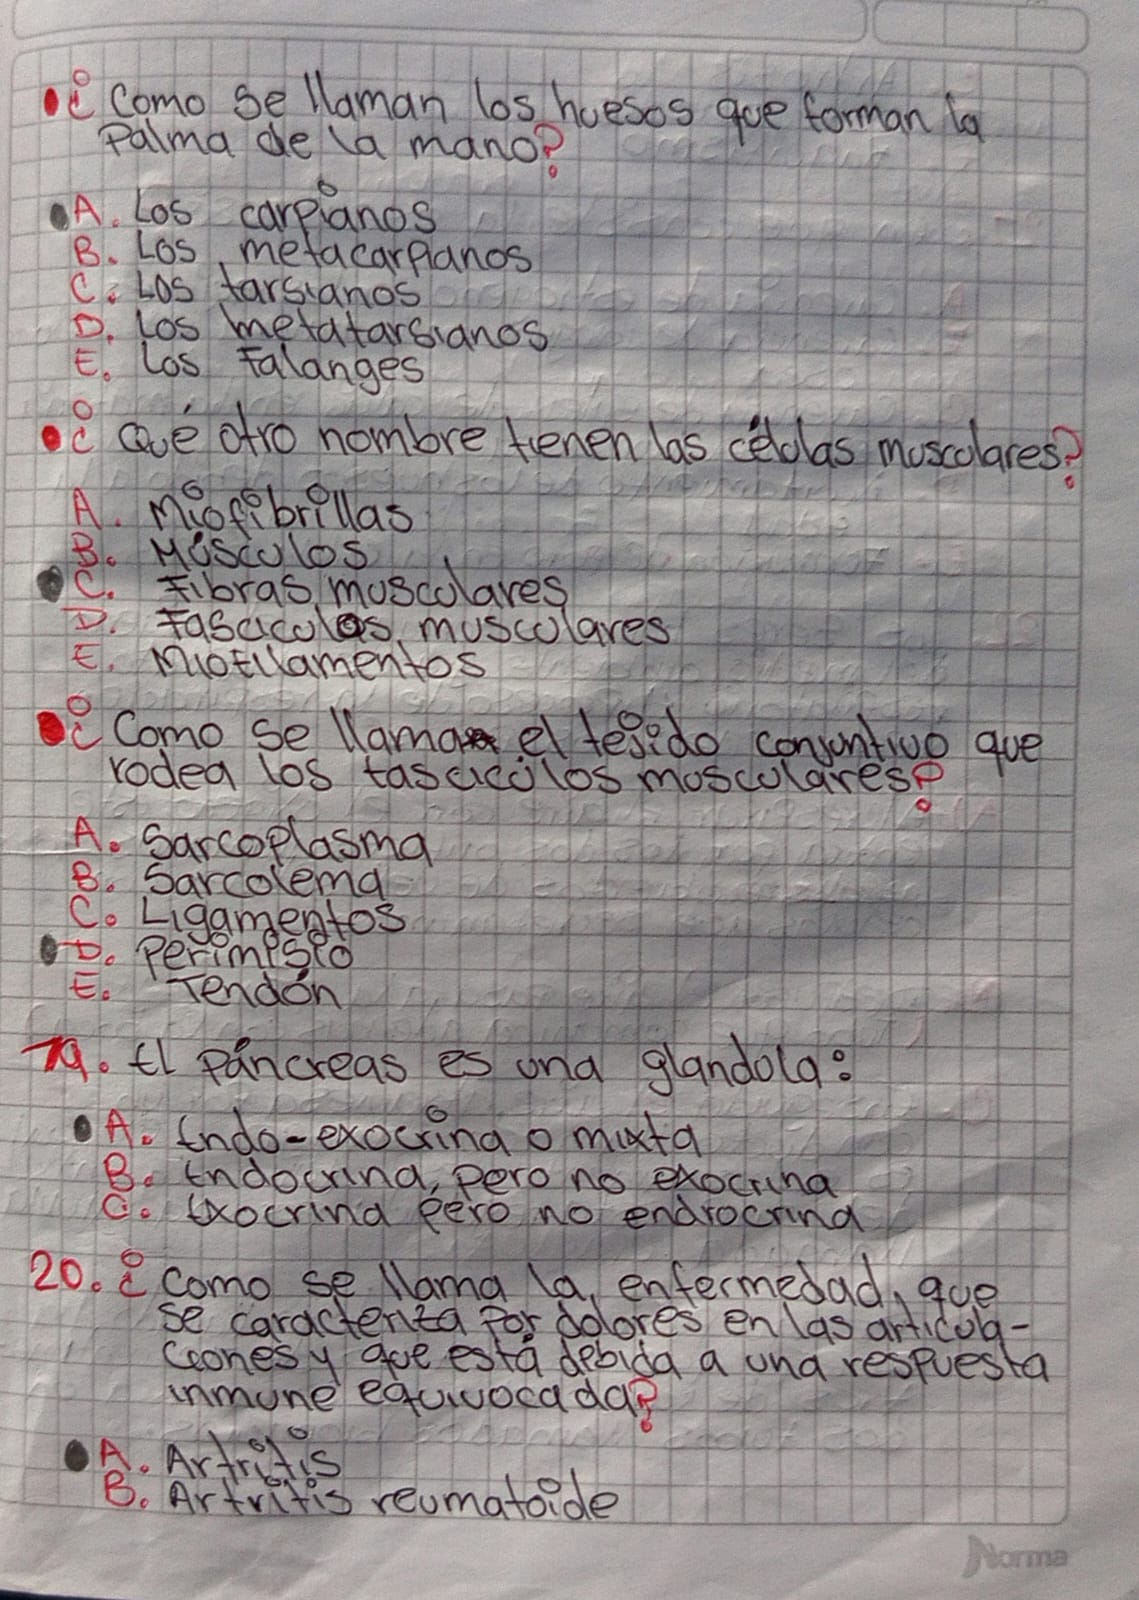 ¿Como se llaman los huesos que forman la
Palma de la mano?
A. Los carpianos
B. Los metacarpianos
C. Los tarsianos
D. Los metatarsianos
E. Los Falanges
¿Qué otro nombre tienen las células musculares?
A. Miofibrillas
B. Músculos
C. Fibras musculares
D. Fasciculos musculares
E. Miofilamentos
¿Como se llama el tejido conjuntivo que
rodea los fascicúlos musculares?
A. Sarcoplasma
B. Sarcolema
C. Ligamentos
D. Perimisio
E. Tendón
19. El páncreas es una glandola:
A. Endo-exocrina o mixta
B. Endocrina, pero no exocrina
C. Exocrina pero no endrocrina
20. ¿Como se llama la enfermedad, que
se caracteriza por dolores en las articula-
ciones y que está debida a una respuesta
inmune equivocada?
A. Artritis
B. Artritis reumatoide
Norma